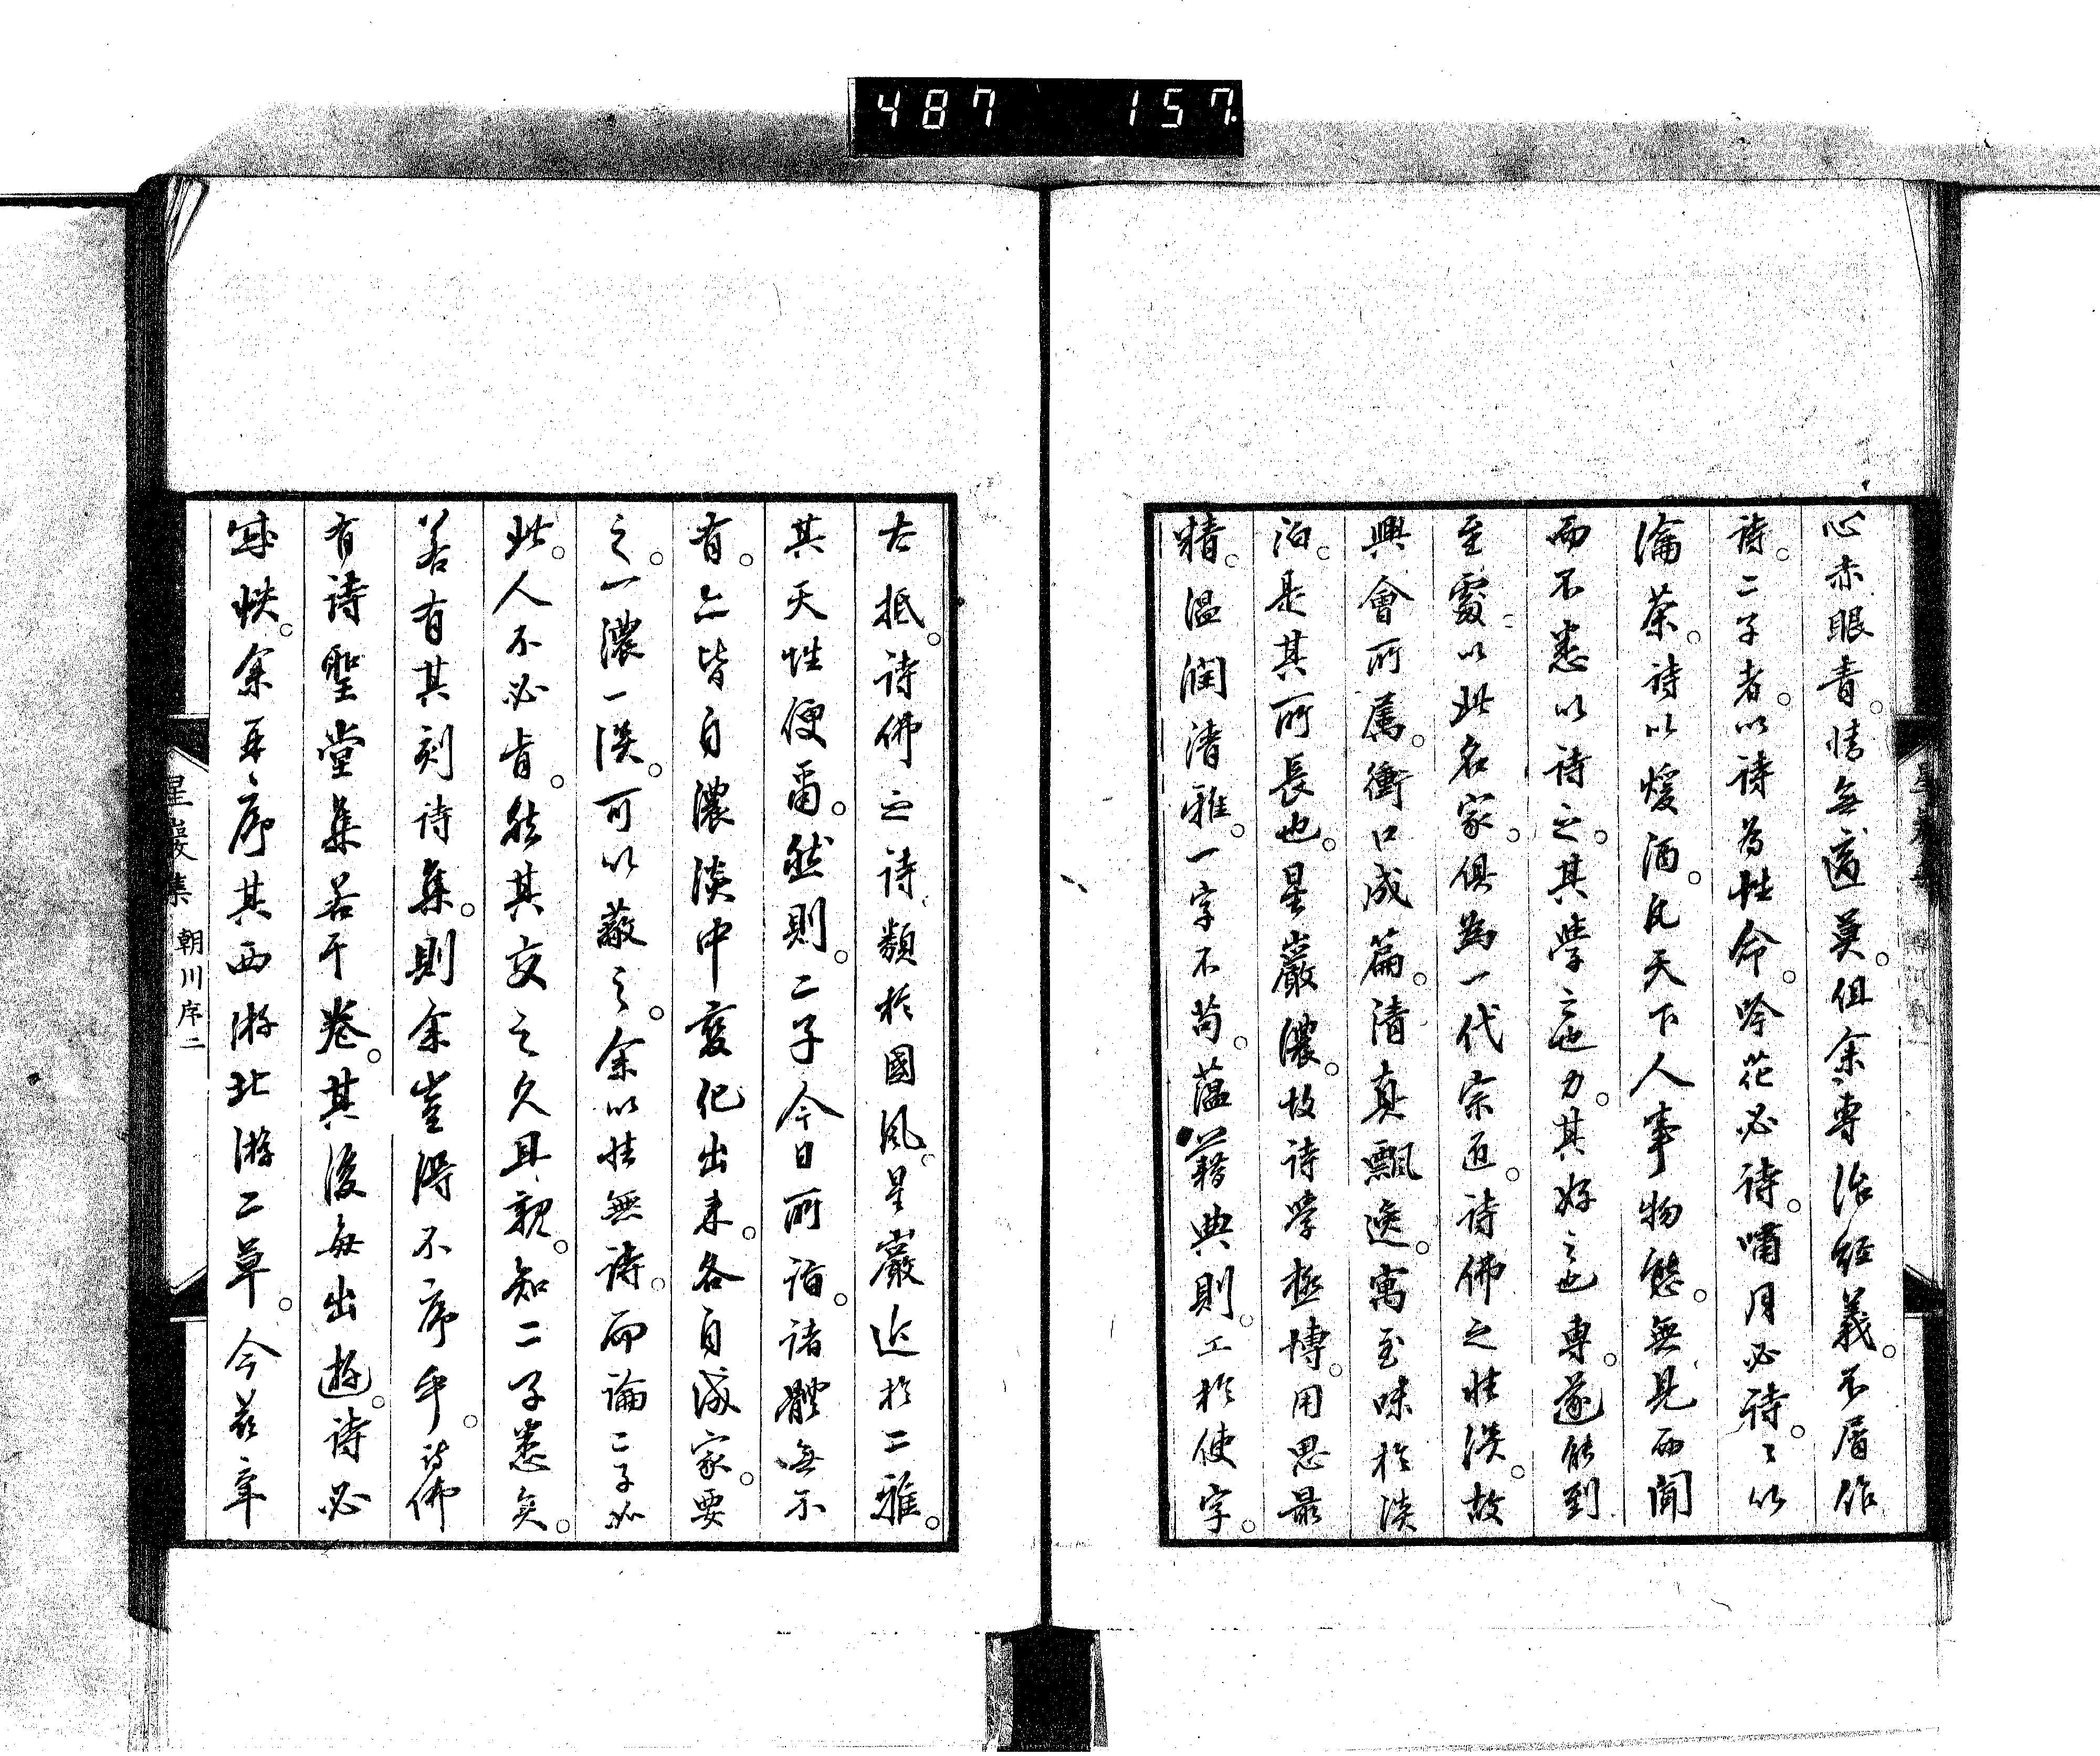 487 157.
心赤眼青。情無適莫。但余專治經義。不屑作
詩。二子者。以詩為性命。吟花必詩。嘯月必詩。詩以
瀹茶。詩以煖酒。凡天下人事物態。無見而聞
而不悉以詩之。其學之也力。其好之也專。遂能到
至處。以此名家。俱為一代宗匠。詩佛之性淡。故
興會所屬。衝口成篇。清真飄逸。寓至味於淡
泊。是其所長也。星巖濃。故詩學極博。用思最
精。溫潤清雅。一字不苟。蘊藉典則。工於使字。
大抵。詩佛之詩類於國風。星巖近於二雅。
其天性便爾。然則。二子今日所詣。諸體無不
有。亦皆自濃淡中變化出來。各自成家。要
之。一濃一淡。可以蔽之。余以性無詩。而論二子如
此。人不必肯。然其交之久且親。知二子悉矣。
若有其刻詩集。則余豈得不序乎。詩佛
有詩聖堂集若干卷。其後每出遊。詩必
成帙。余再序其西游北游二草。今茲辛
星巖集 朝川序 二